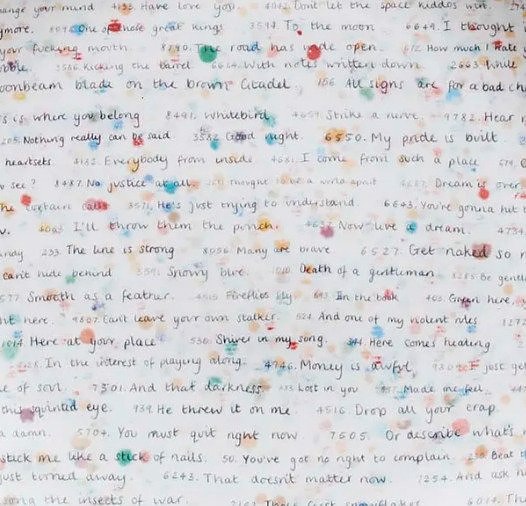 ange your mind 4133. Have love you. 4042. Dont let the space kiddos win.
ymore. 8094. One of those great kings 3594. To the moon 6649. I thought
your fucking mouth. 8790. The road has wide open. 612. How much I hate
bble. 3586. Kicking the barrel 6614. With notes written down. 2663. While
oonbeam blade on the brown Citadel. 156. All signs are for a bad ch
s is where you belong 8491. Whitebird. 4659. Strike a nerve. 9782. Hear
205. Nothing really can be said 3582. Good night. 6550. My pride is built
heartsets 4182. Everybody from inside. 4681. I come from such a place
see? 8487. No justice at all. thought to be a world apart Dream is over
he curtain calls 3571. He's just trying to understand 6643. You're gonna hit
w. 4093. I'll throw them the punch. 4637. Now live a dream. 4734
andy 233. The line is strong 8056. Many are brave 6527. Get naked so
can't hide behind 3591. Snowy blue. Death of a gentleman Be gentle
577 Smooth as a feather. 4515. Fireflies fly In the book 403. Green here,
ht here. 4807. Can't leave your own stalker. 524. And one of my violent rules 1272
1014. Here at your place 530. Shiver in my song. 841. Here comes heading
328. In the interest of playing along. 4746. Money is awful, I just
e of soul. 7301. And that darkness Lost in you 857. Made me feel
this squinted eye. 939. He threw it on me. 4516. Drop all your crap.
a damn. 5704. You must quit right now. 7505. Or describe what's
stick me like a stick of nails. 50. You've got no right to complain. Beat
just turned away. 6243. That doesn't matter now. 1254. And ask
song the insects of war. first snowflakes 6014. Th